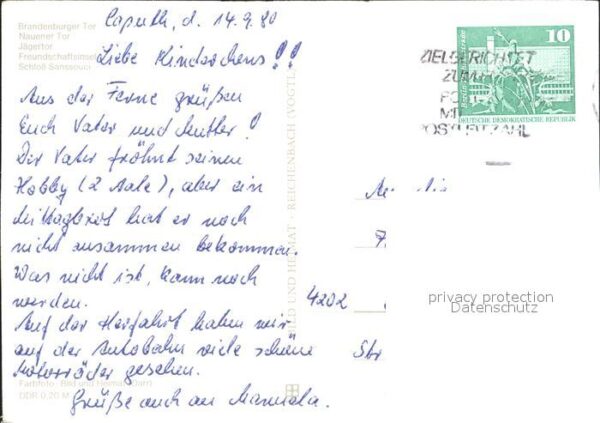 Brandenburger Tor
Nauener Tor
Jägertor
Freundschaftsinsel
Schloß Sanssouci
Caputh, d. 14.9.80
Liebe Kinderchens!!
Aus der Ferne grüßen
Euch Vater und Mutter!
Der Vater fröhnt seinen
Hobby (2 Aale), aber ein
Mittagbrot hat er noch
nicht zusammen bekommen.
Was nicht ist, kann noch
werden.
Auf der Herfahrt haben wir
auf der Autobahn viele schöne
Motorräder gesehen.
Grüße auch an Manuela.
Farbfoto: Bild und Heimat
DDR 0,20 M
BILD UND HEIMAT · REICHENBACH (VOGTL)
ZIELGERICHTET
ZUM
MI
POSTLEITZAHL
10
DEUTSCHE DEMOKRATISCHE REPUBLIK
4202
Str
privacy protection
Datenschutz